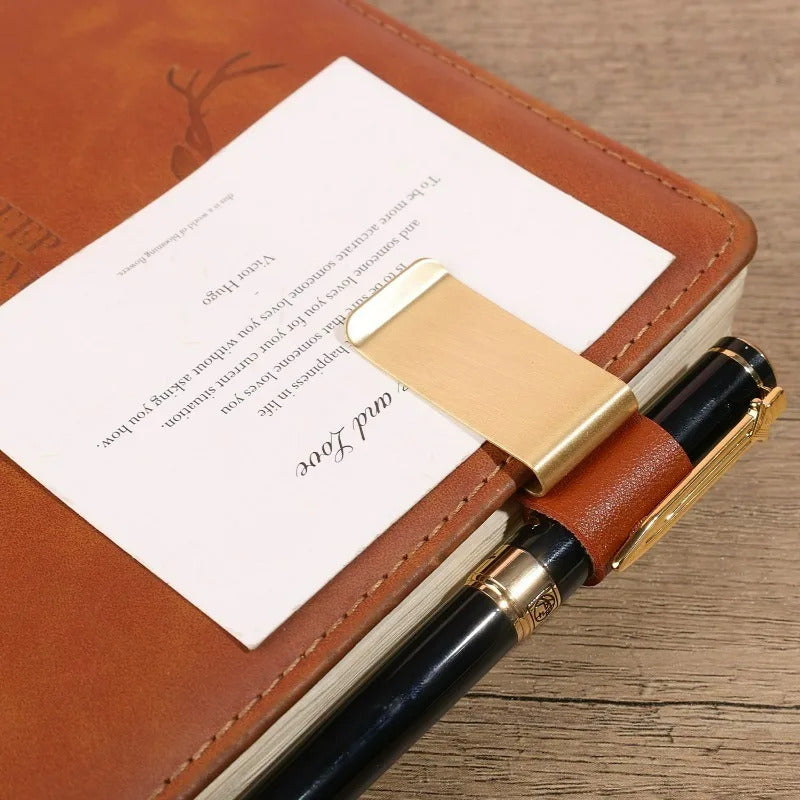 and Love
happiness in life
Is to be sure that someone loves you
and someone loves you for your current situation.
To be more accurate someone loves you without asking you how.
-
Victor Hugo
this is a world of blooming flowers.